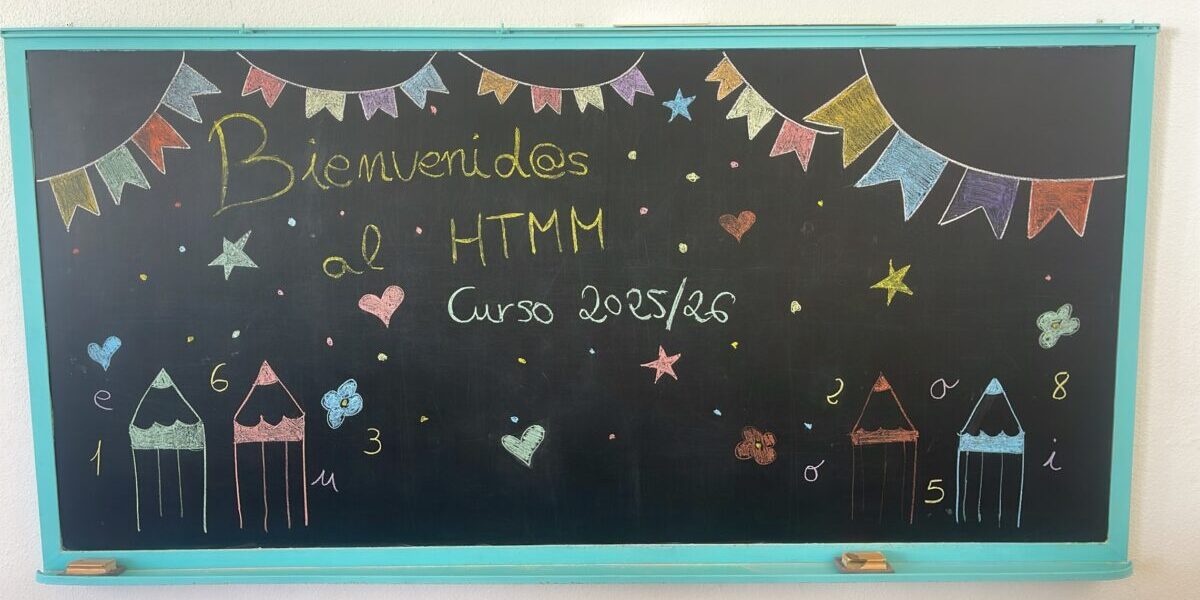 Bienvenid@s
al HTMM
Curso 2025/26
6
e
1
3
u
2
a
8
o
i
5